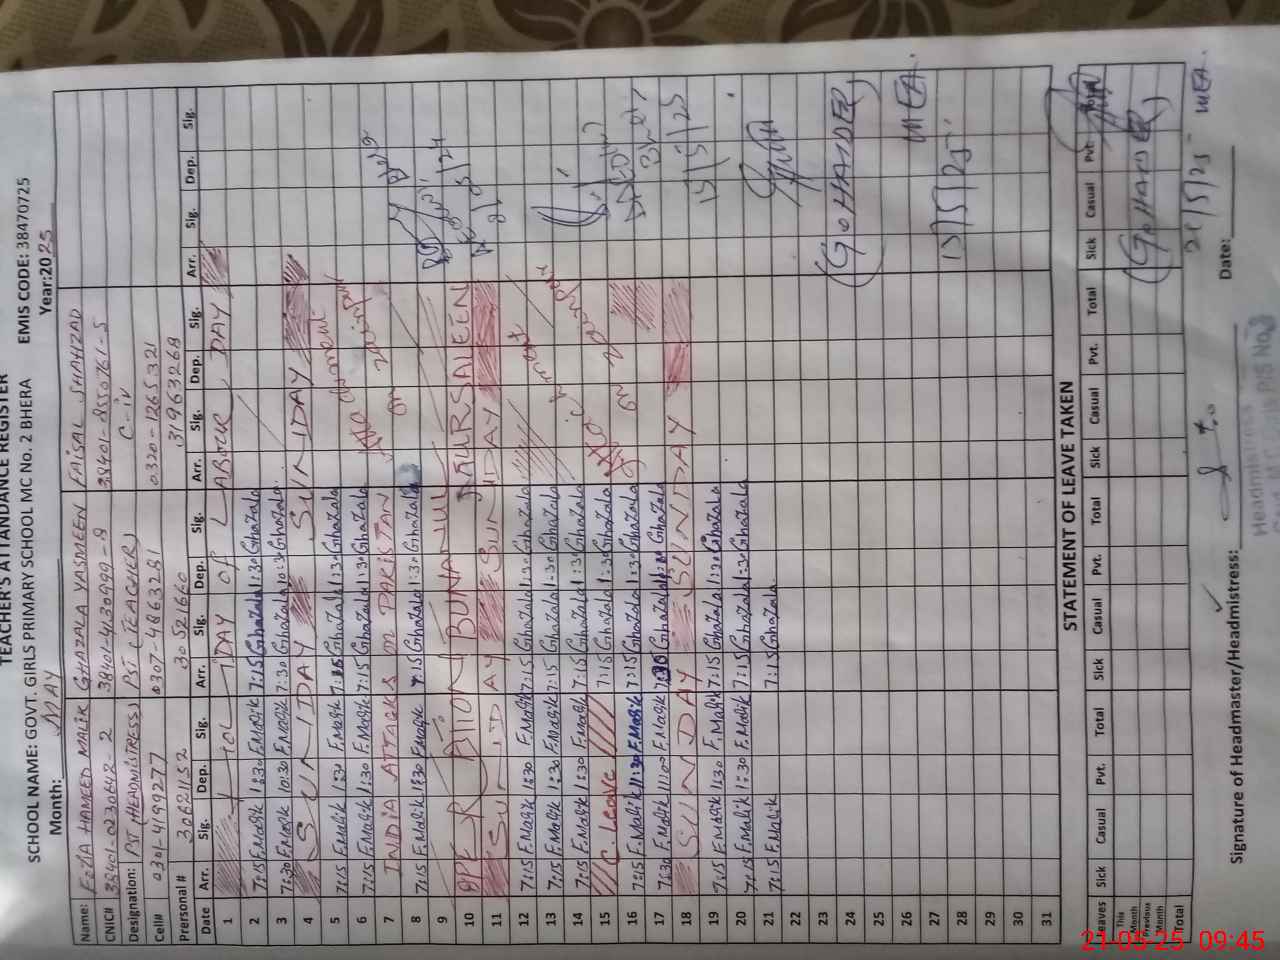 TEACHER'S ATTANDANCE REGISTER
SCHOOL NAME: GOVT. GIRLS PRIMARY SCHOOL MC No. 2 BHERA EMIS CODE: 38470725
Month: MAY Year:2025
Name: FOZIA HAMEED MALIK GHAZALA YASMEEN FAISAL SHAHZAD
CNIC# 38401-0230642-2 38401-4130999-8 38401-8550761-5
Designation: PST (HEADMISTRESS) PST (TEACHER) C-iv
Cell# 0301-4199277 0307-4863281 0320-1265321
Prersonal # 30621152 30521660 31963268
Date Arr. Sig. Dep. Sig. Arr. Sig. Dep. Sig. Arr. Sig. Dep. Sig. Arr. Sig. Dep. Sig.
1 DAY OF LABOUR DAY
2 7:15 F.Malik 1:30 F.Malik 7:15 Ghazala 1:30 Ghazala
3 7:30 F.Malik 10:30 F.Malik 7:30 Ghazala 10:30 Ghazala
4 SUNDAY SUNDAY
5 7:15 F.Malik 1:30 F.Malik 7:15 Ghazala 1:30 Ghazala
6 7:15 F.Malik 1:30 F.Malik 7:15 Ghazala 1:30 Ghazala
7 INDIA ATTACKS on PAKISTAN
8 7:15 F.Malik 1:30 F.Malik 7:15 Ghazala 1:30 Ghazala
9
10 OPERATION BUNANUL MURSALEEN
11 SUNDAY SUNDAY
12 7:15 F.Malik 1:30 F.Malik 7:15 Ghazala 1:30 Ghazala
13 7:15 F.Malik 1:30 F.Malik 7:15 Ghazala 1:30 Ghazala
14 7:15 F.Malik 1:30 F.Malik 7:15 Ghazala 1:30 Ghazala
15 C. Leave 7:15 Ghazala 1:30 Ghazala
16 7:15 F.Malik 11:30 F.Malik 7:15 Ghazala 1:30 Ghazala
17 7:30 F.Malik 11:00 F.Malik 7:30 Ghazala Ghazala
18 SUNDAY SUNDAY
19 7:15 F.Malik 1:30 F.Malik 7:15 Ghazala 1:30 Ghazala
20 7:15 F.Malik 1:30 F.Malik 7:15 Ghazala 1:30 Ghazala
21 7:15 F.Malik 7:15 Ghazala
22
23
24 (G. HAIDER)
25
26 MEA.
27
28 13/5/25
29
30
31
15/5/25
STATEMENT OF LEAVE TAKEN
Leaves Sick Casual Pvt. Total Sick Casual Pvt. Total Sick Casual Pvt. Total Sick Casual Pvt. Total
This Month
Previous Month
Total
(G. HAIDER)
21/5/25 MEA.
Signature of Headmaster/Headmistress: Date:
Headmistress
21-05-25 09:45